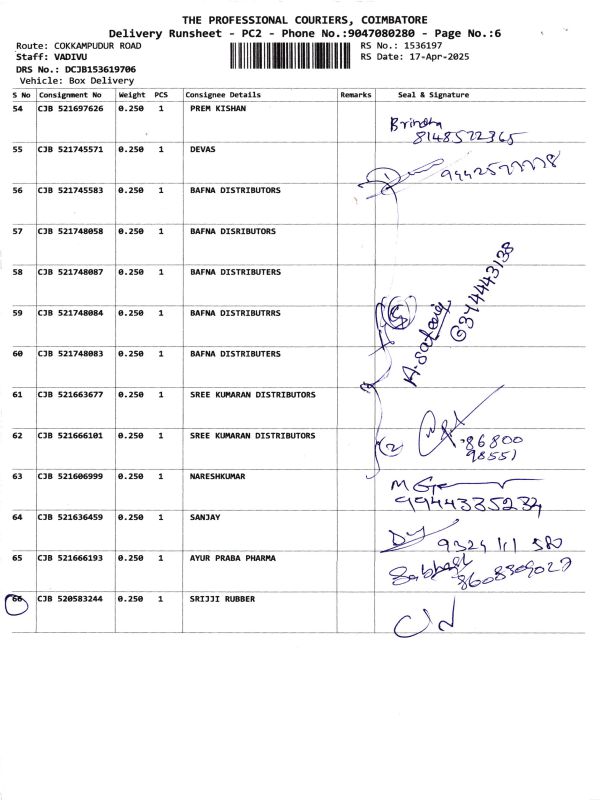 THE PROFESSIONAL COURIERS, COIMBATORE
Delivery Runsheet - PC2 - Phone No.:9047080280 - Page No.:6
Route: COKKAMPUDUR ROAD RS No.: 1536197
Staff: VADIVU RS Date: 17-Apr-2025
DRS No.: DCJB153619706
Vehicle: Box Delivery
S No Consignment No Weight PCS Consignee Details Remarks Seal & Signature
54 CJB 521697626 0.250 1 PREM KISHAN
Brindha
8148522365
55 CJB 521745571 0.250 1 DEVAS
56 CJB 521745583 0.250 1 BAFNA DISTRIBUTORS
57 CJB 521748058 0.250 1 BAFNA DISRIBUTORS
58 CJB 521748087 0.250 1 BAFNA DISTRIBUTERS
6374443138
59 CJB 521748084 0.250 1 BAFNA DISTRIBUTRRS
5
60 CJB 521748083 0.250 1 BAFNA DISTRIBUTERS
61 CJB 521663677 0.250 1 SREE KUMARAN DISTRIBUTORS
62 CJB 521666101 0.250 1 SREE KUMARAN DISTRIBUTORS
2
86800
98551
63 CJB 521606999 0.250 1 NARESHKUMAR
9944385234
64 CJB 521636459 0.250 1 SANJAY
65 CJB 521666193 0.250 1 AYUR PRABA PHARMA
8608309027
66 CJB 520583244 0.250 1 SRIJJI RUBBER